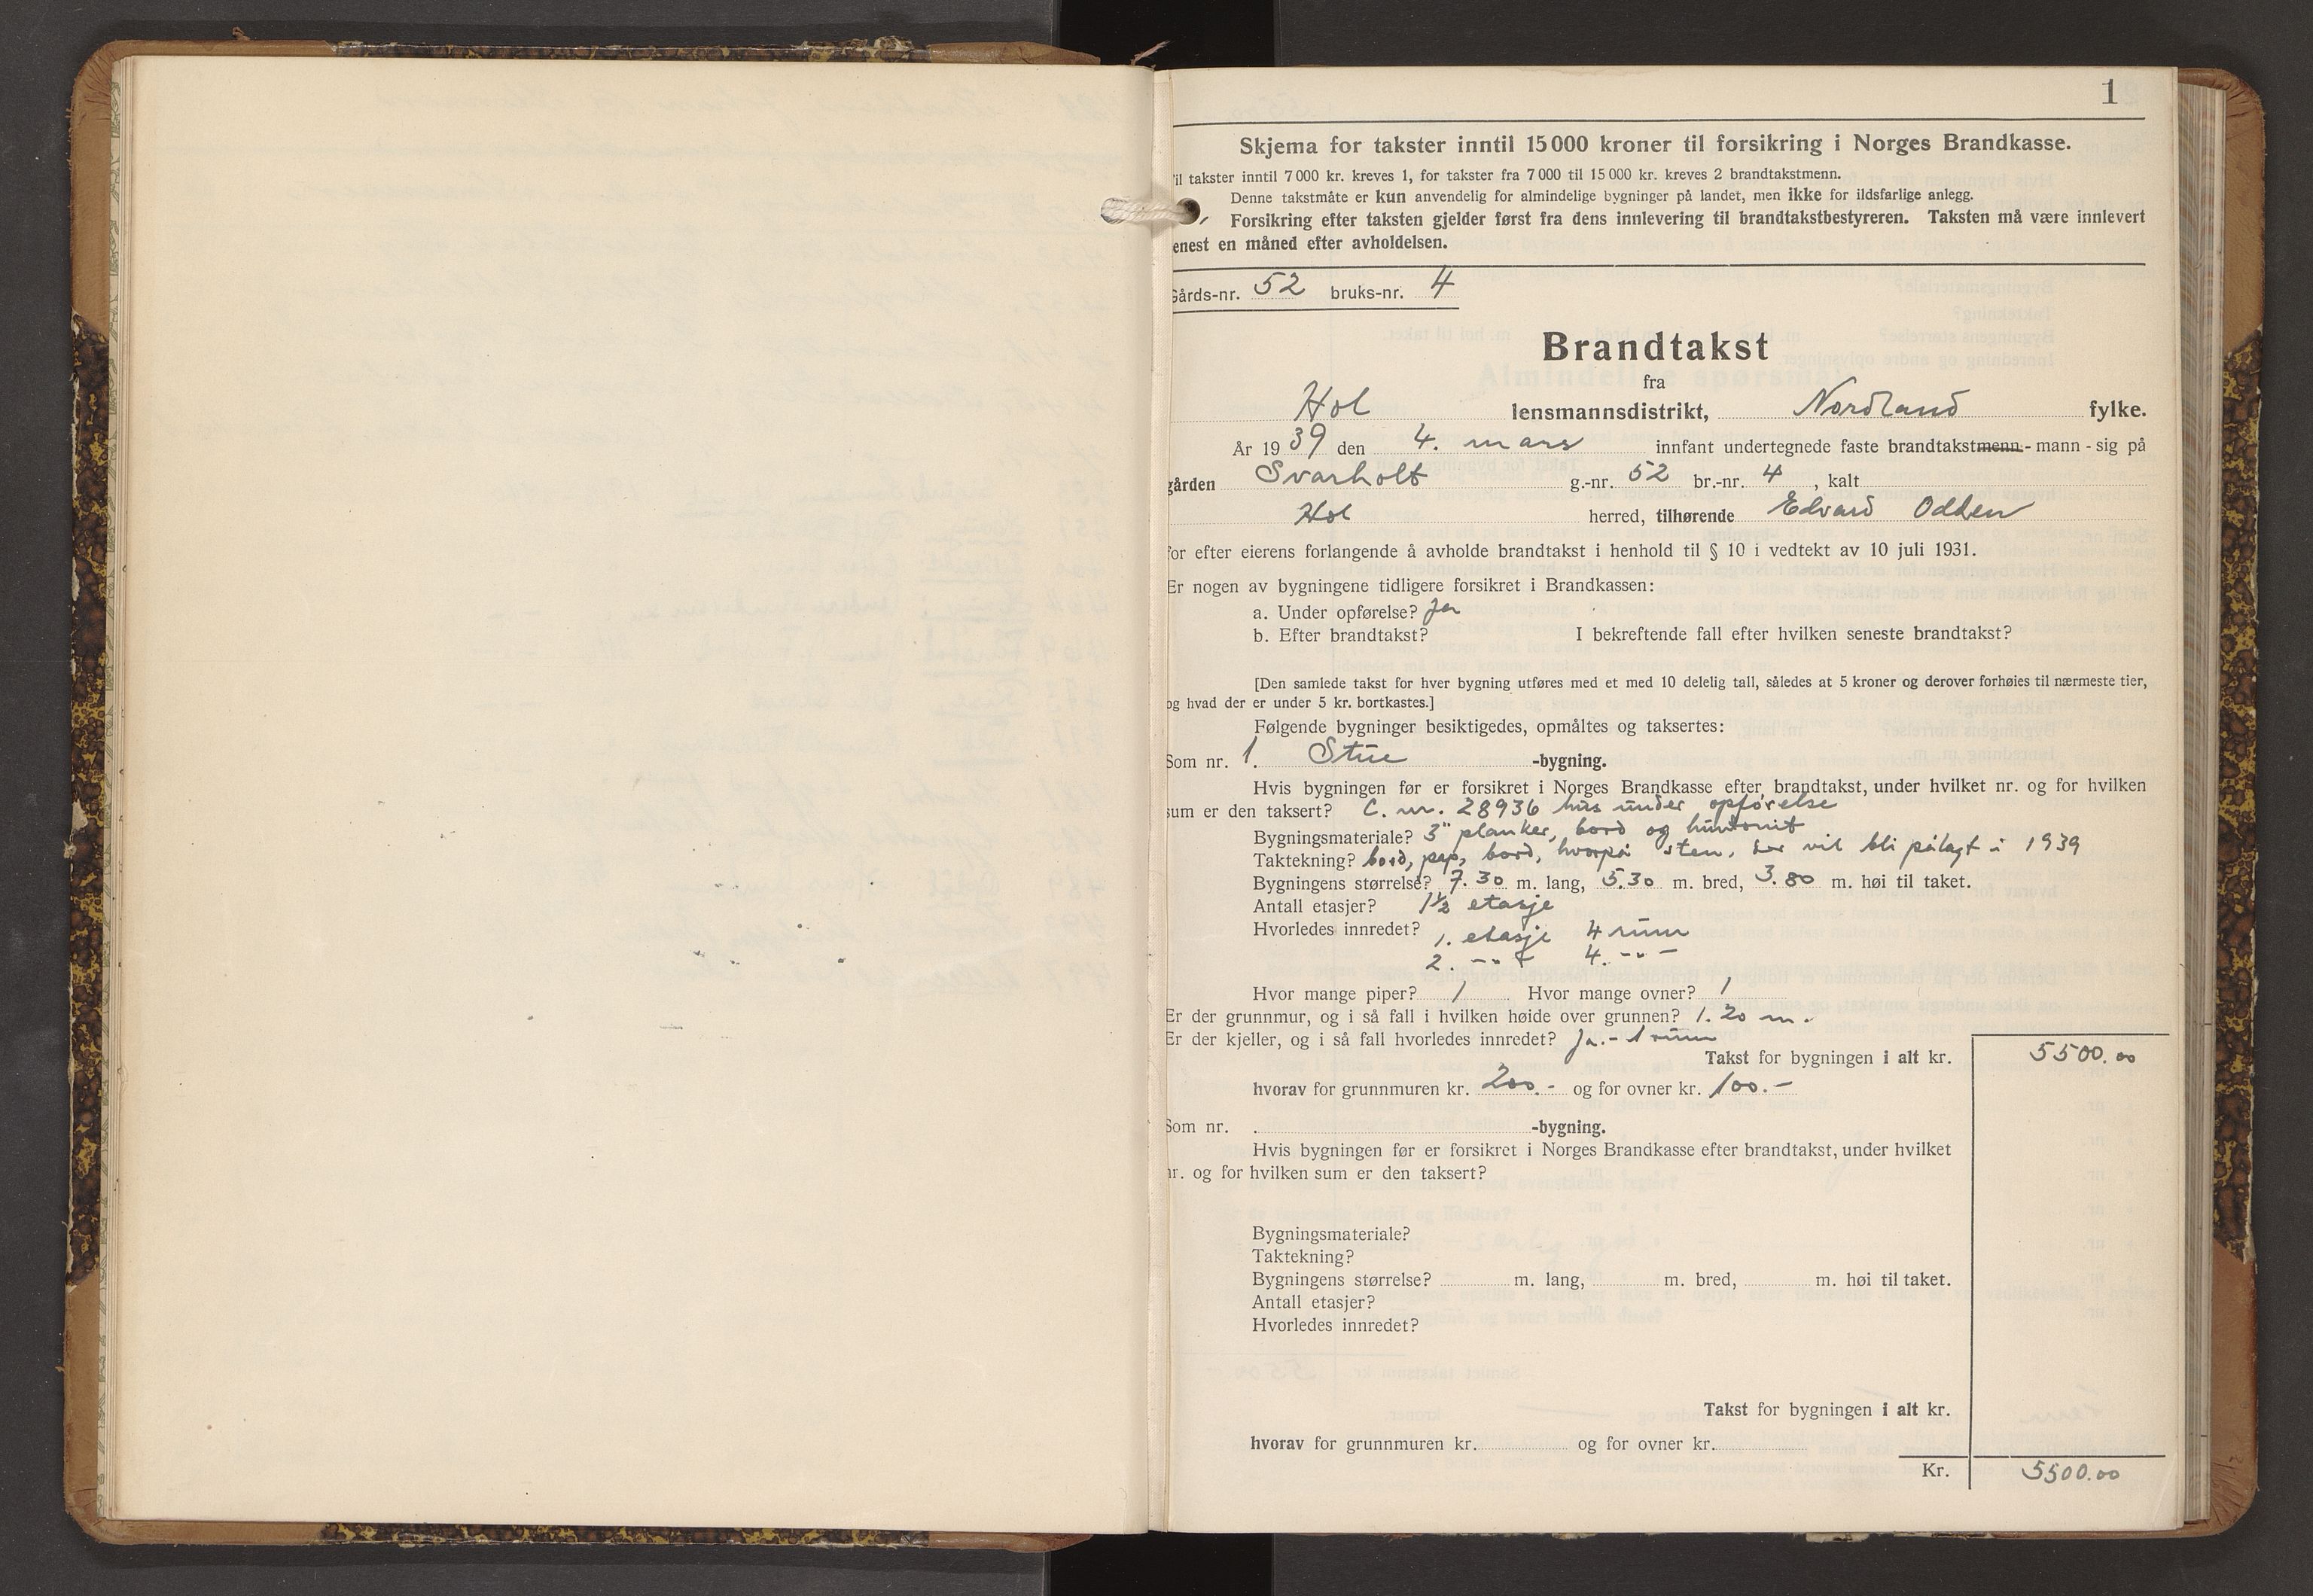 1
Skjema for takster inntil 15 000 kroner til forsikring i Norges Brandkasse.
il takster inntil 7 000 kr. kreves 1, for takster fra 7 000 til 15 000 kr. kreves 2 brandtakstmenn.
Denne takstmåte er kun anvendelig for almindelige bygninger på landet, men ikke for ildsfarlige anlegg.
Forsikring efter taksten gjelder først fra dens innlevering til brandtakstbestyreren. Taksten må være innlevert
enest en måned efter avholdelsen.
Gårds-nr. 52 bruks-nr. 4
Brandtakst
fra
Hol lensmannsdistrikt, Nordland fylke.
År 1939 den 4. mars innfant undertegnede faste brandtakstmenn - mann - sig på
gården Svarholt g.-nr. 52 br.-nr. 4 , kalt
Hol herred, tilhørende Edvard Odden
for efter eierens forlangende å avholde brandtakst i henhold til § 10 i vedtekt av 10 juli 1931.
Er nogen av bygningene tidligere forsikret i Brandkassen:
a. Under opførelse? Ja
b. Efter brandtakst? I bekreftende fall efter hvilken seneste brandtakst?
[Den samlede takst for hver bygning utføres med et med 10 delelig tall, således at 5 kroner og derover forhøies til nærmeste tier,
og hvad der er under 5 kr. bortkastes.]
Følgende bygninger besiktigedes, opmåltes og taksertes:
Som nr. 1. Stue -bygning.
Hvis bygningen før er forsikret i Norges Brandkasse efter brandtakst, under hvilket nr. og for hvilken
sum er den taksert? C. nr. 28936 hus under opførelse
Bygningsmateriale? 3" planker, bord og huntonit
Taktekning? bord, pap, bord, hvorpå sten, vil bli pålagt i 1939
Bygningens størrelse? 7.30 m. lang, 5.30 m. bred, 3.80 m. høi til taket.
Antall etasjer? 1½ etasje
Hvorledes innredet? 1. etasje 4 rum
2. -"- 4. -"-
Hvor mange piper? 1 Hvor mange ovner? 1
Er der grunnmur, og i så fall i hvilken høide over grunnen? 1.20 m.
Er der kjeller, og i så fall hvorledes innredet? Ja.- 1 rum
Takst for bygningen i alt kr. 5500.00
hvorav for grunnmuren kr. 200.- og for ovner kr. 100.-
Som nr. . -bygning.
Hvis bygningen før er forsikret i Norges Brandkasse efter brandtakst, under hvilket
nr. og for hvilken sum er den taksert?
Bygningsmateriale?
Taktekning?
Bygningens størrelse? m. lang, m. bred, m. høi til taket.
Antall etasjer?
Hvorledes innredet?
Takst for bygningen i alt kr.
hvorav for grunnmuren kr. og for ovner kr.
Kr. 5500.00